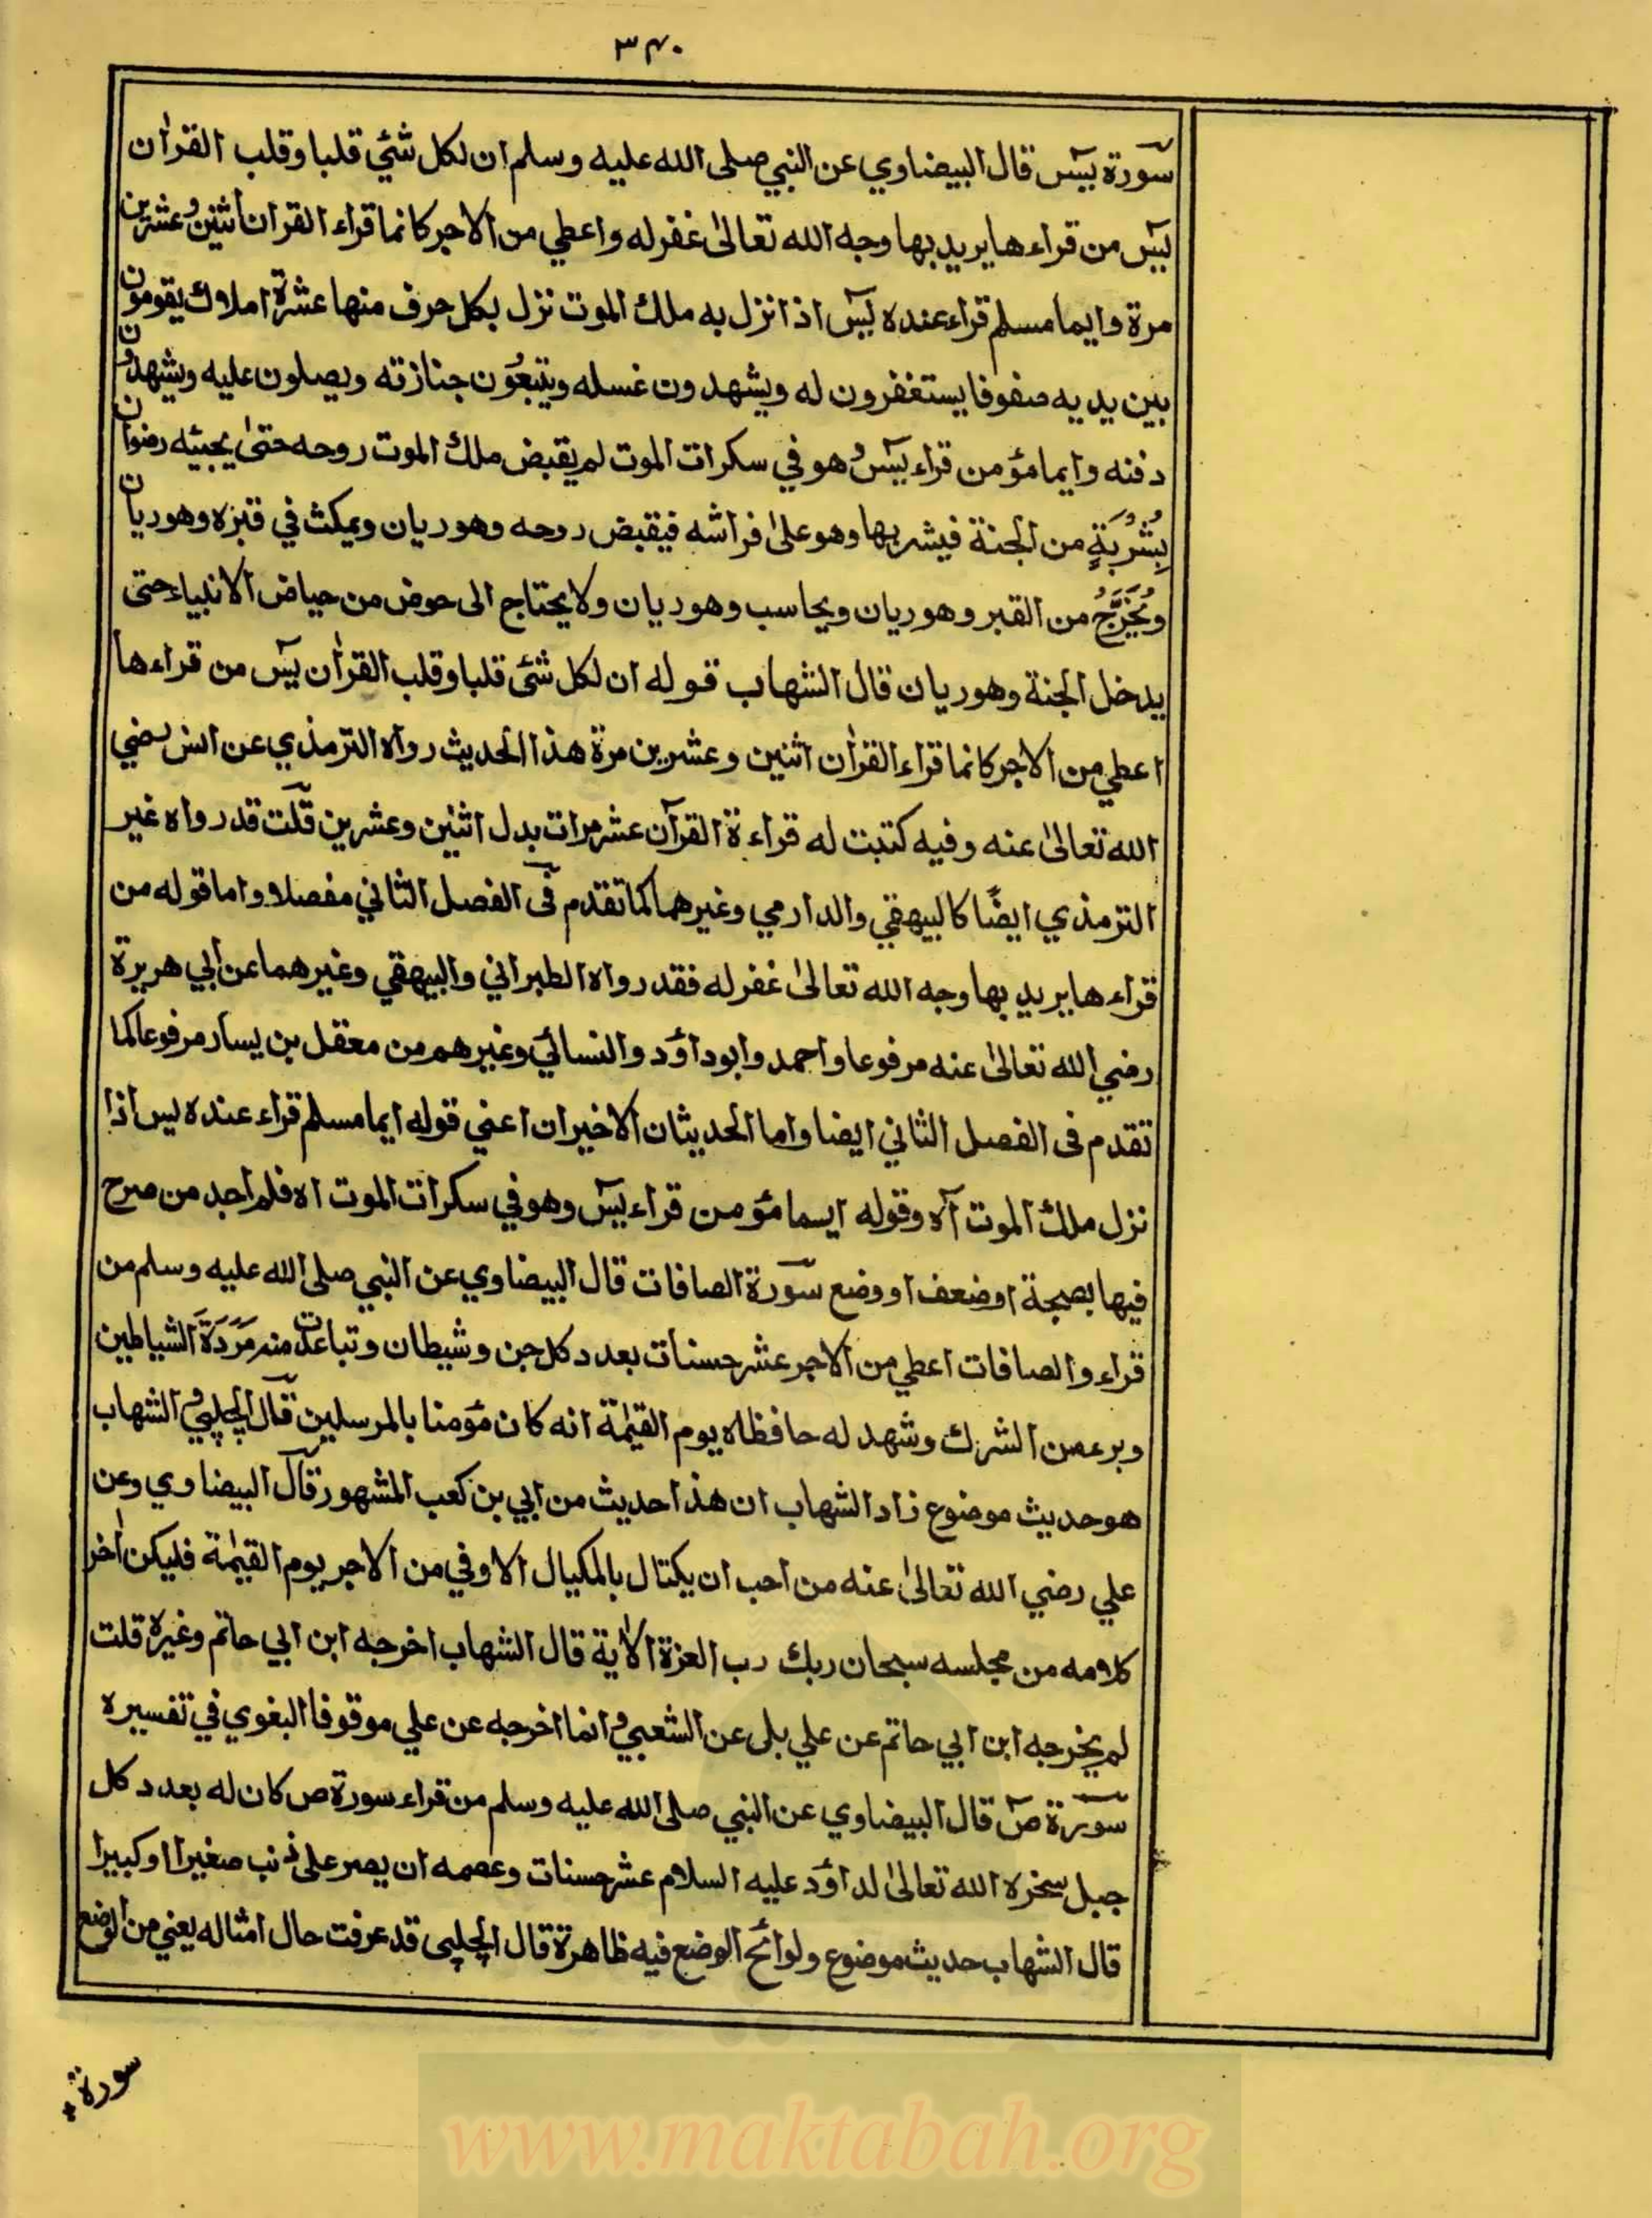 ۳۴۰
سورة يٰسٓ قال البيضاوي عن النبي صلى الله عليه وسلم ان لكل شئي قلبا وقلب القرأن
يٰسٓ من قراءها يريد بها وجه الله تعالىٰ غفرله واعطي من الاجر كانما قراء القران اثنين وعشرين
مرة وايما مسلم قراء عنده يٰسٓ اذا نزل به ملك الموت نزل بكل حرف منها عشرة املاك يقومون
بين يديه صفوفا يستغفرون له ويشهدون غسله ويتبعُون جنازته ويصلون عليه ويشهدون
دفنه وايما مؤمن قراء يٰسٓ وهو في سكرات الموت لم يقبض ملك الموت روحه حتىٰ يجيئه رضوان
بِشُرْبَةٍ من الجنة فيشربها وهو علىٰ فراشه فيقبض روحه وهو ريان ويمكث في قبره وهو ريان
ويُخْرَجُ من القبر وهو ريان ويحاسب وهو ريان ولا يحتاج الى حوض من حياض الانبياء حتى
يدخل الجنة وهو ريان قال الشهاب قوله ان لكل شئى قلبا وقلب القرأن يٰسٓ من قراءها
اعطي من الاجر كانما قراء القرأن اثنين وعشرين مرة هذا الحديث رواه الترمذي عن انس رضي
الله تعالىٰ عنه وفيه كتبت له قراءة القرآن عشر مرات بدل اثنين وعشرين قلت قد رواه غير
الترمذي ايضًا كالبيهقي والدارمي وغيرهما كما تقدم فى الفصل الثاني مفصلا واما قوله من
قراءها يريد بها وجه الله تعالىٰ غفرله فقد رواه الطبراني والبيهقي وغيرهما عن ابي هريرة
رضي الله تعالىٰ عنه مرفوعا واحمد وابوداؤد والنسائي وغيرهم من معقل بن يسار مرفوعا كما
تقدم فى الفصل الثاني ايضا واما الحديثان الاخيران اعني قوله ايما مسلم قراء عنده يس اذا
نزل ملك الموت آه وقوله ايما مؤمن قراء يٰسٓ وهو في سكرات الموت اه فلم اجد من صرح
فيها بصحة او ضعف او وضع سورة الصافات قال البيضاوي عن النبي صلى الله عليه وسلم من
قراء والصافات اعطي من الاجر عشر حسنات بعدد كل جن وشيطان وتباعدت منه مَرَدَةُ الشياطين
وبرء من الشرك وشهد له حافظاه يوم القيٰمة انه كان مؤمنا بالمرسلين قال الچلپي والشهاب
هو حديث موضوع زاد الشهاب ان هذا حديث من ابي بن كعب المشهور قال البيضاوي وعن
علي رضي الله تعالىٰ عنه من احب ان يكتال بالمكيال الاوفي من الاجر يوم القيٰمة فليكن أخر
كلامه من مجلسه سبحان ربك رب العزة الأية قال الشهاب اخرجه ابن ابي حاتم وغيره قلت
لم يخرجه ابن ابي حاتم عن علي بلى عن الشعبي وانما اخرجه عن علي موقوفا البغوي في تفسيره
سورة صٓ قال البيضاوي عن النبي صلى الله عليه وسلم من قراء سورة ص كان له بعدد كل
جبل سخره الله تعالىٰ لداؤد عليه السلام عشر حسنات وعصمه ان يصر على ذنب صغيرا او كبيرا
قال الشهاب حديث موضوع ولوائح الوضع فيه ظاهرة قال الچلپى قد عرفت حال امثاله يعني من الوضع
سورة
www.maktabah.org